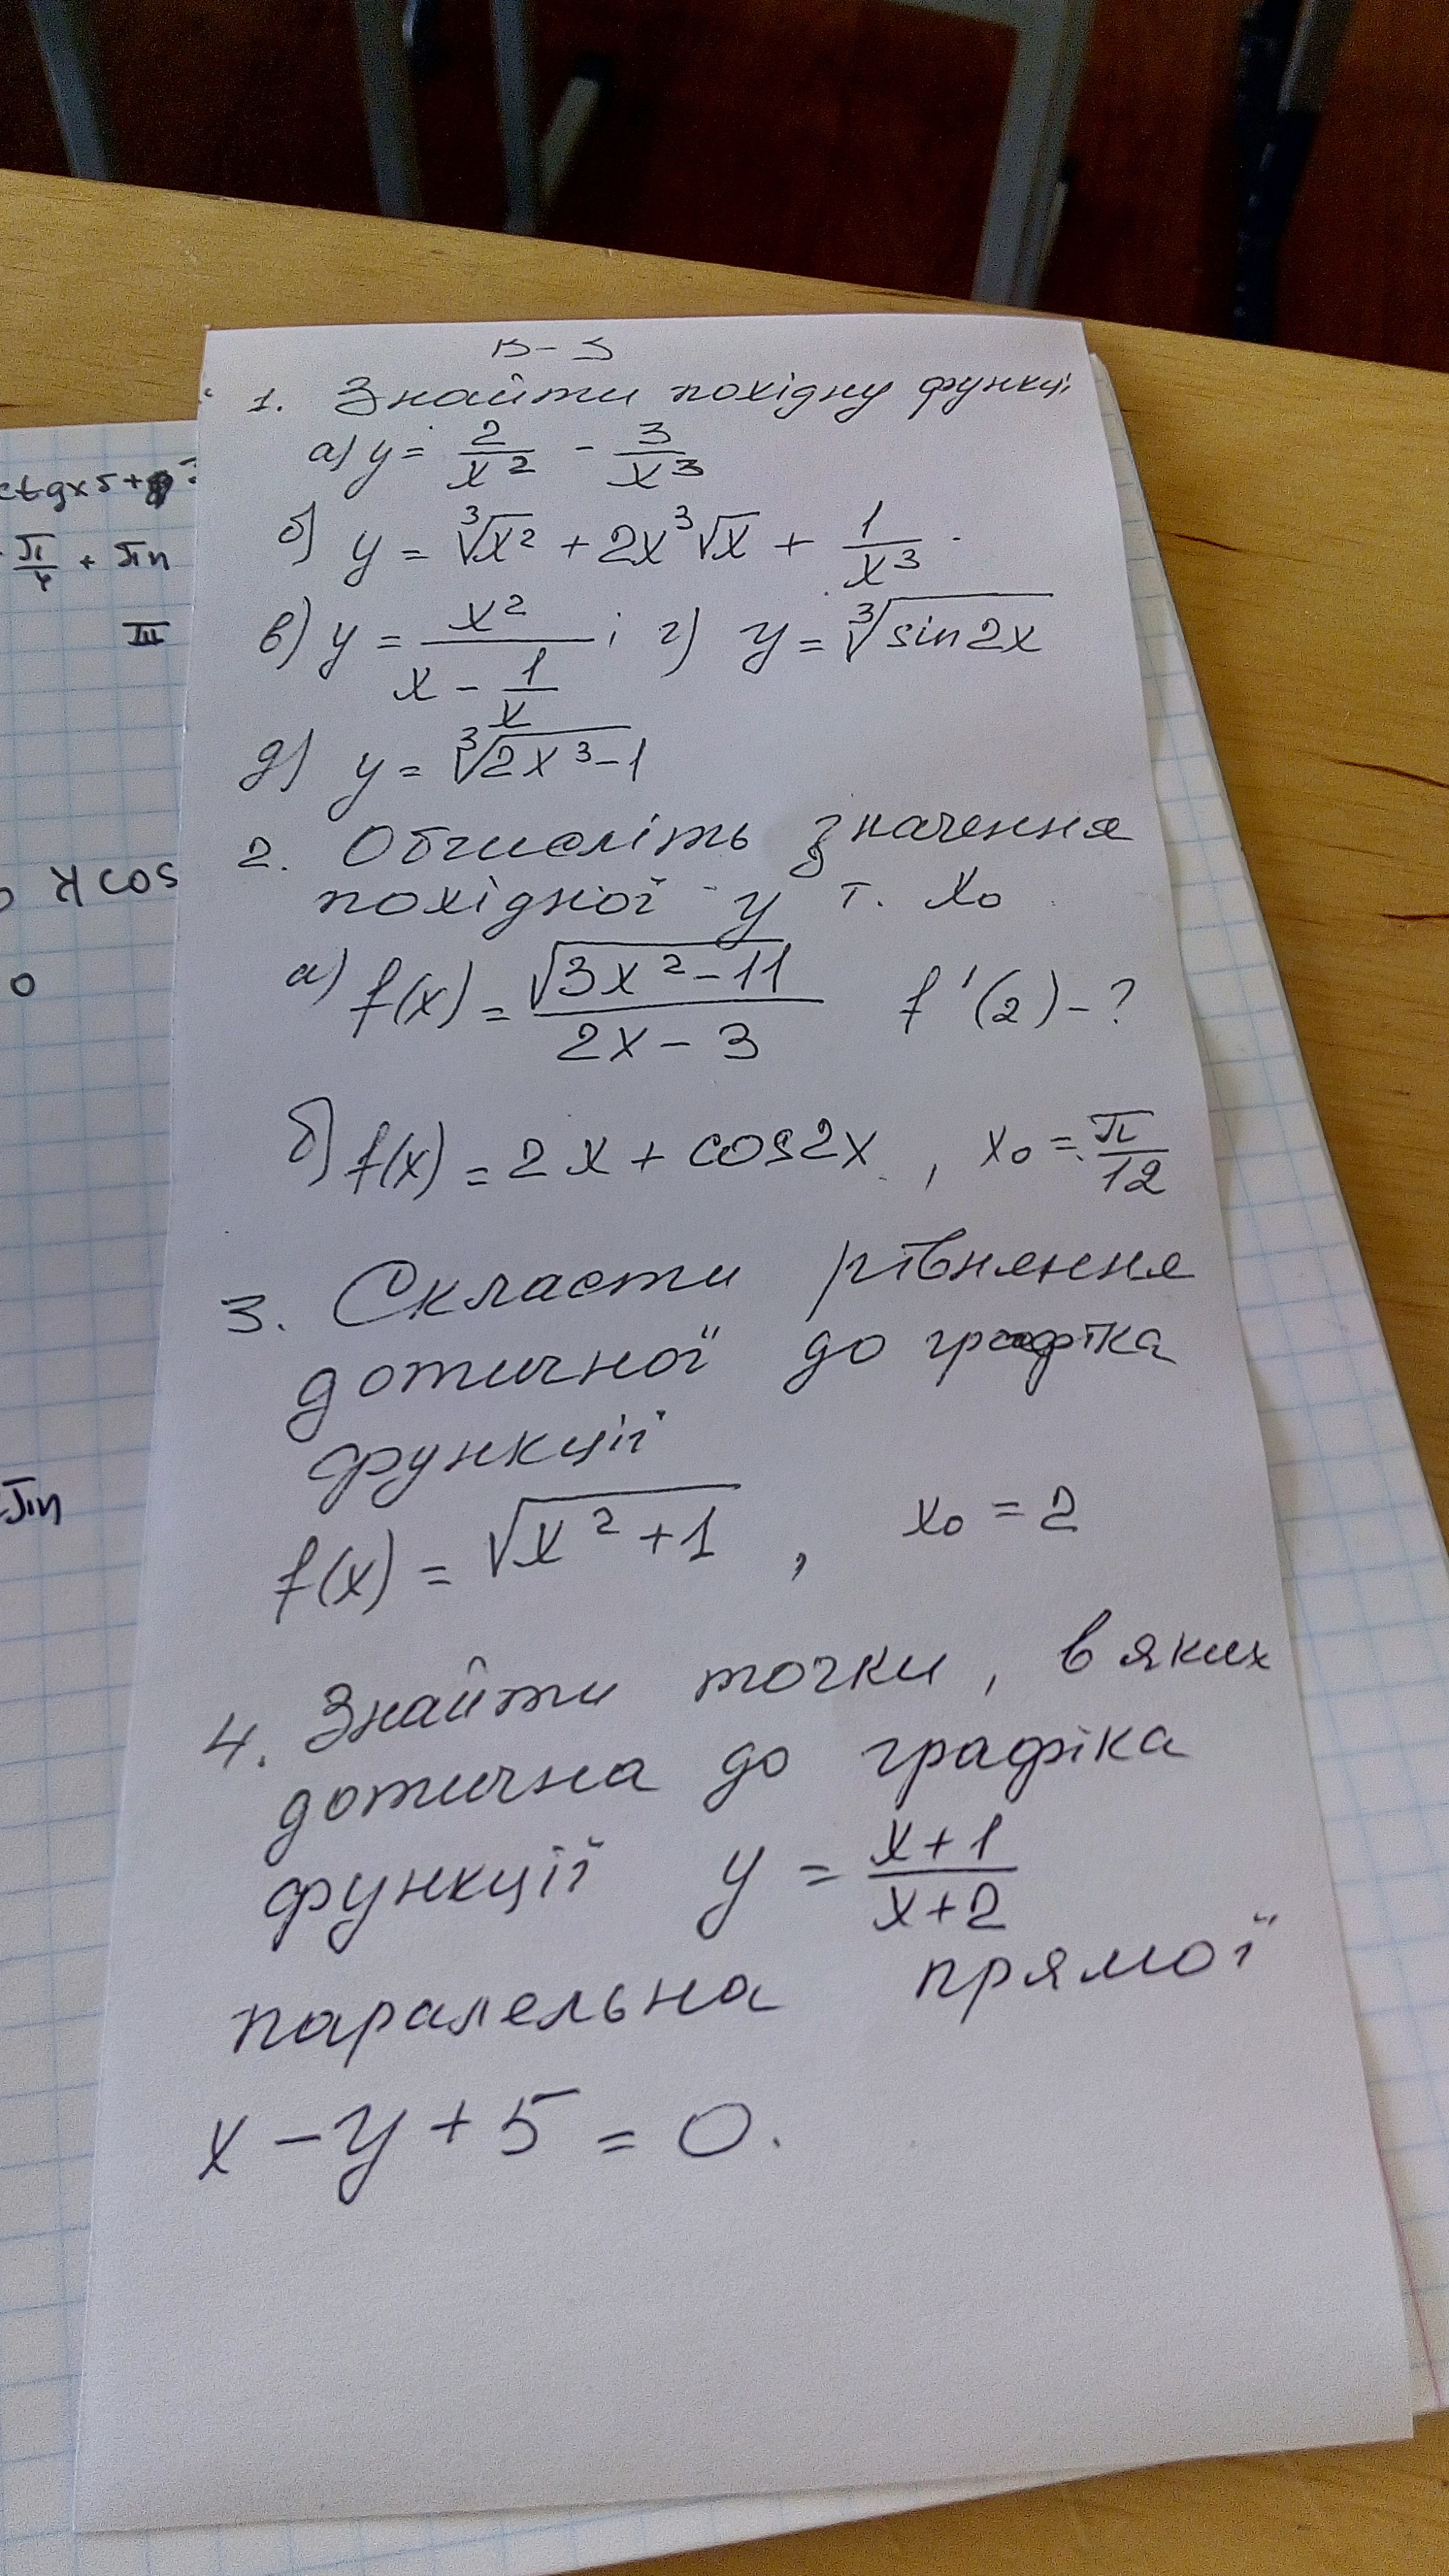 В-3
1. Знайти похідну функції
а) y = 2/x² - 3/x³
б) y = ³√x² + 2x ³√x + 1/x³
в) y = x²/(x - 1/x) ; г) y = ³√sin2x
д) y = ³√2x³-1
2. Обчисліть значення
похідної у т. x₀
а) f(x) = √3x²-11/(2x-3) f'(2) - ?
б) f(x) = 2x + cos2x , x₀ = π/12
3. Скласти рівняння
дотичної до графіка
функції
f(x) = √x²+1 , x₀ = 2
4. Знайти точки, в яких
дотична до графіка
функції y = (x+1)/(x+2)
паралельна прямої
x - y + 5 = 0.
ctgx5+
π/4 + πn
III
cos
0
πn